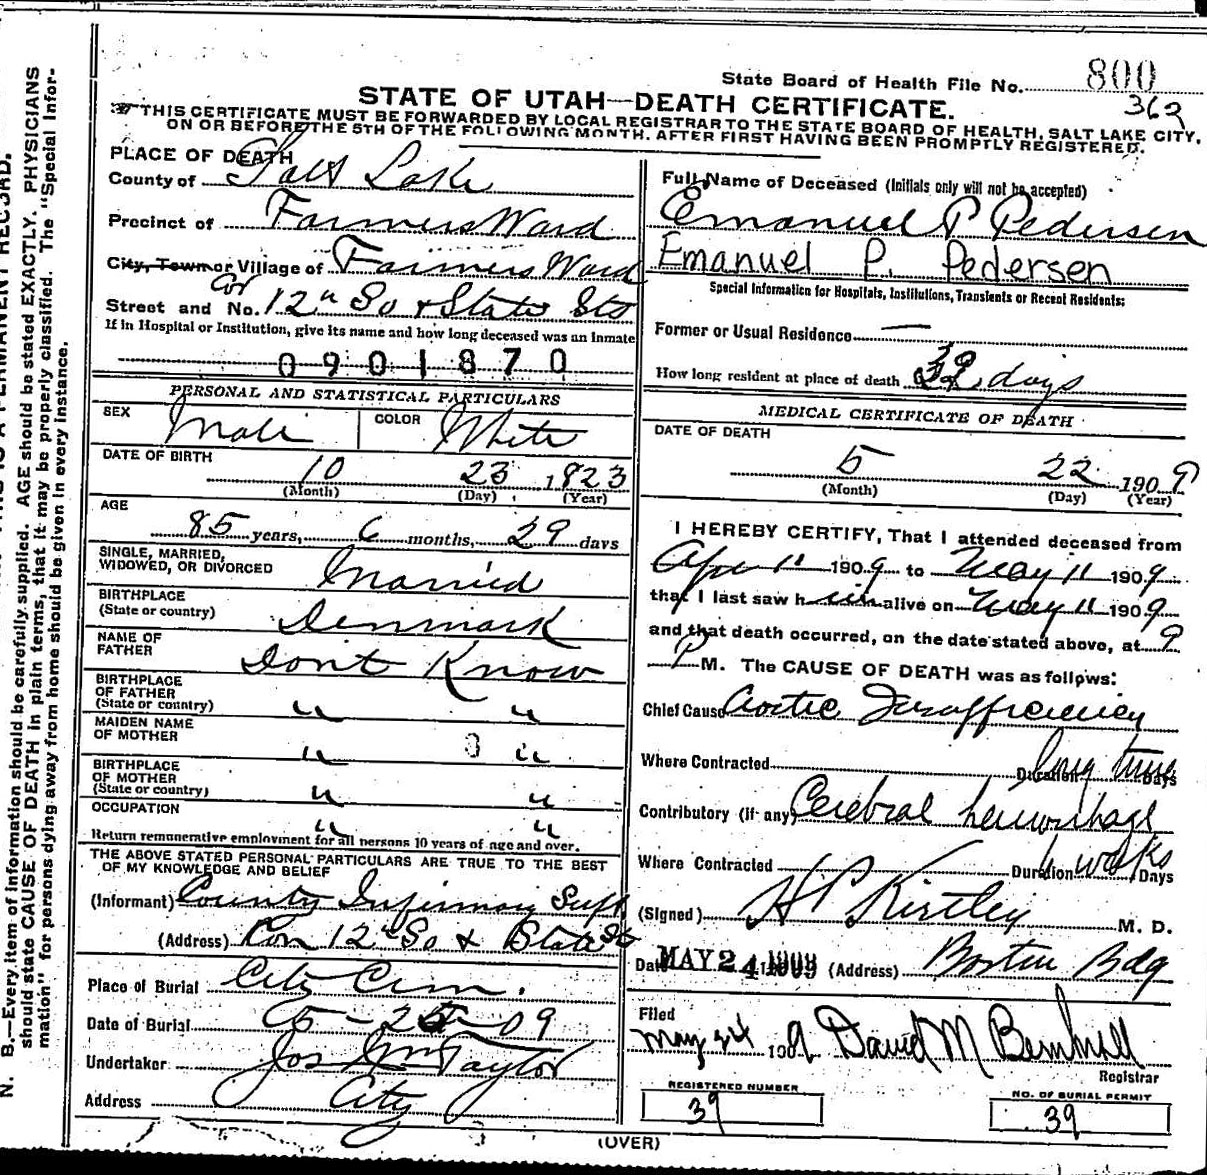 State Board of Health File No. 800
362
STATE OF UTAH—DEATH CERTIFICATE.
THIS CERTIFICATE MUST BE FORWARDED BY LOCAL REGISTRAR TO THE STATE BOARD OF HEALTH, SALT LAKE CITY,
ON OR BEFORE THE 5TH OF THE FOLLOWING MONTH, AFTER FIRST HAVING BEEN PROMPTLY REGISTERED.
PLACE OF DEATH
County of Salt Lake
Precinct of Farmers Ward
City, Town or Village of Farmers Ward
Cor
Street and No. 12th So & State Sts
If in Hospital or Institution, give its name and how long deceased was an Inmate
0901870
PERSONAL AND STATISTICAL PARTICULARS
SEX Male COLOR White
DATE OF BIRTH
10 23 1823
(Month) (Day) (Year)
AGE
85 years, 6 months, 29 days
SINGLE, MARRIED,
WIDOWED, OR DIVORCED Married
BIRTHPLACE
(State or country) Denmark
NAME OF
FATHER Dont Know
BIRTHPLACE
OF FATHER
(State or country) " "
MAIDEN NAME
OF MOTHER " 3 "
BIRTHPLACE
OF MOTHER
(State or country) " "
OCCUPATION " "
Return remunerative employment for all persons 10 years of age and over.
THE ABOVE STATED PERSONAL PARTICULARS ARE TRUE TO THE BEST
OF MY KNOWLEDGE AND BELIEF
(Informant) County Infirmary Supt
(Address) Cor 12th So & State St
Place of Burial City Cem.
Date of Burial 5-25-09
Undertaker Jos Wm Taylor
Address City
Full Name of Deceased (Initials only will not be accepted)
Emanuel P Pedersen
Emanuel P. Pedersen
Special Information for Hospitals, Institutions, Transients or Recent Residents:
Former or Usual Residence —
How long resident at place of death 39 days
MEDICAL CERTIFICATE OF DEATH
DATE OF DEATH
5 22 1909
(Month) (Day) (Year)
I HEREBY CERTIFY, That I attended deceased from
Apr 11 1909 to May 11 1909
that I last saw him alive on May 11 1909
and that death occurred, on the date stated above, at 9
P M. The CAUSE OF DEATH was as follows:
Chief Cause Aortic Insufficiency
Where Contracted Duration long time Days
Contributory (if any) Cerebral hemorrhage
Where Contracted Duration 6 weeks Days
(Signed) H P Kirtley M. D.
Date MAY 24 1909 (Address) Boston Bdg
Filed
May 24 1909 David M Bernhill
Registrar
REGISTERED NUMBER
39
NO. OF BURIAL PERMIT
39
(OVER)
N. B.—Every item of information should be carefully supplied. AGE should be stated EXACTLY. PHYSICIANS
should state CAUSE OF DEATH in plain terms, that it may be properly classified. The "Special Infor-
mation" for persons dying away from home should be given in every instance.